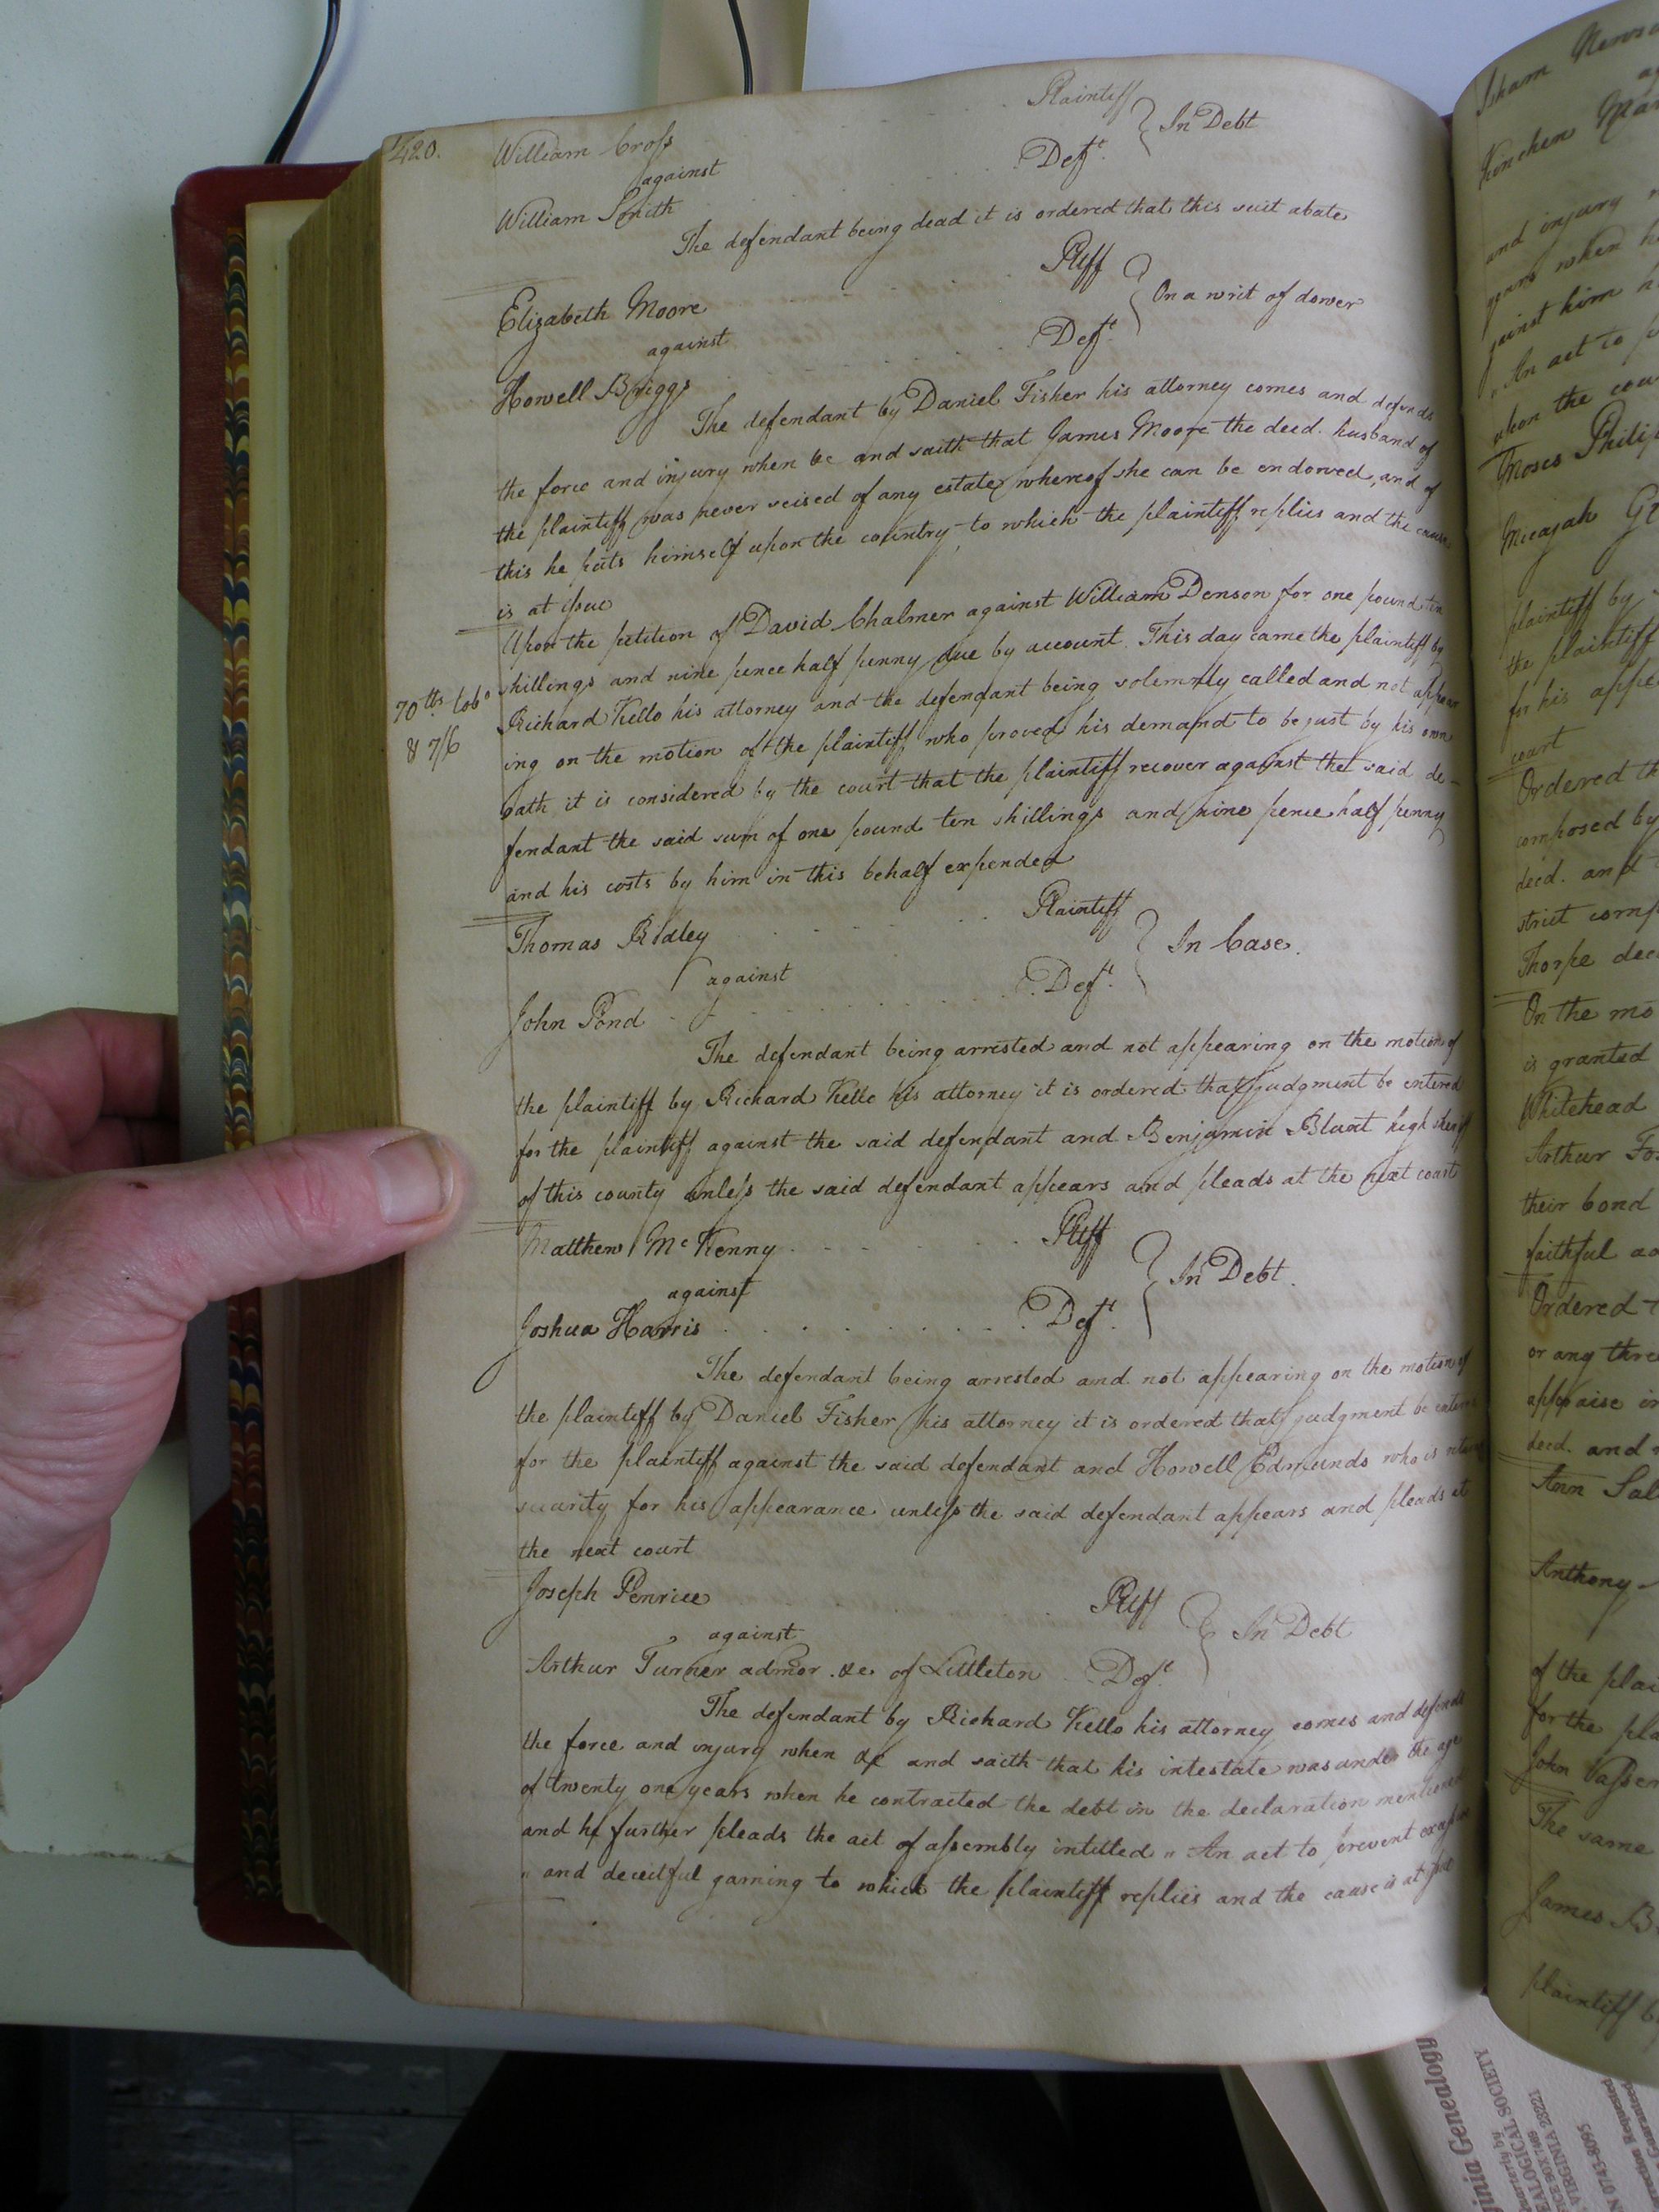 420.
William Cross Plaintiff
against In Debt
William Smith Deft.
The defendant being dead it is ordered that this suit abate
Elizabeth Moore Pltff
against On a writ of dower
Howell Briggs Deft.
The defendant by Daniel Fisher his attorney comes and defends
the force and injury when &c and saith that James Moore the decd. husband of
the plaintiff was never seised of any estate whereof she can be endowed, and of
this he puts himself upon the country to which the plaintiff replies and the cause
is at issue
Upon the petition of David Chalmer against William Denson for one pound ten
shillings and nine pence half penny due by account. This day came the plaintiff by
70 lbs tobo
& 7/6
Richard Kello his attorney and the defendant being solemnly called and not appear
ing on the motion of the plaintiff who proved his demand to be just by his own
oath it is considered by the court that the plaintiff recover against the said de-
fendant the said sum of one pound ten shillings and nine pence half penny
and his costs by him in this behalf expended
Thomas Ridley Plaintiff
against In Case.
John Pond Deft.
The defendant being arrested and not appearing on the motion of
the plaintiff by Richard Kello his attorney it is ordered that judgment be entered
for the plaintiff against the said defendant and Benjamin Blunt high sheriff
of this county unless the said defendant appears and pleads at the next court
Matthew McKenny Pltff
against In Debt.
Joshua Harris Deft.
The defendant being arrested and not appearing on the motion of
the plaintiff by Daniel Fisher his attorney it is ordered that judgment be entered
for the plaintiff against the said defendant and Howell Edmunds who is return
security for his appearance unless the said defendant appears and pleads at
the next court
Joseph Penrice Pltff
against In Debt
Arthur Turner admor. &c. of Littleton Deft.
The defendant by Richard Kello his attorney comes and defends
the force and injury when &c and saith that his intestate was under the age
of twenty one years when he contracted the debt in the declaration mentioned
and he further pleads the act of assembly intitled " An act to prevent excessive
" and deceitful gaming to which the plaintiff replies and the cause is at issue
Kinchen
and injury
years when
against him
" An act to
upon the
Moses Philip
Micajah
plaintiff by
the plaintiff
for his appe
court
Ordered th
composed by
decd. and
strict comp
Thorpe dec
On the mo
is granted
Whitehead
Arthur Fo
their bond
faithful
Ordered t
or any thre
appraise in
decd. and
Ann Sal
Anthony
of the plai
for the pla
John
The same
James B
plaintiff b
inia Genealogy
SOCIETY
VIRGINIA 23221
N 0743-8095
ection Requested
Guarantee